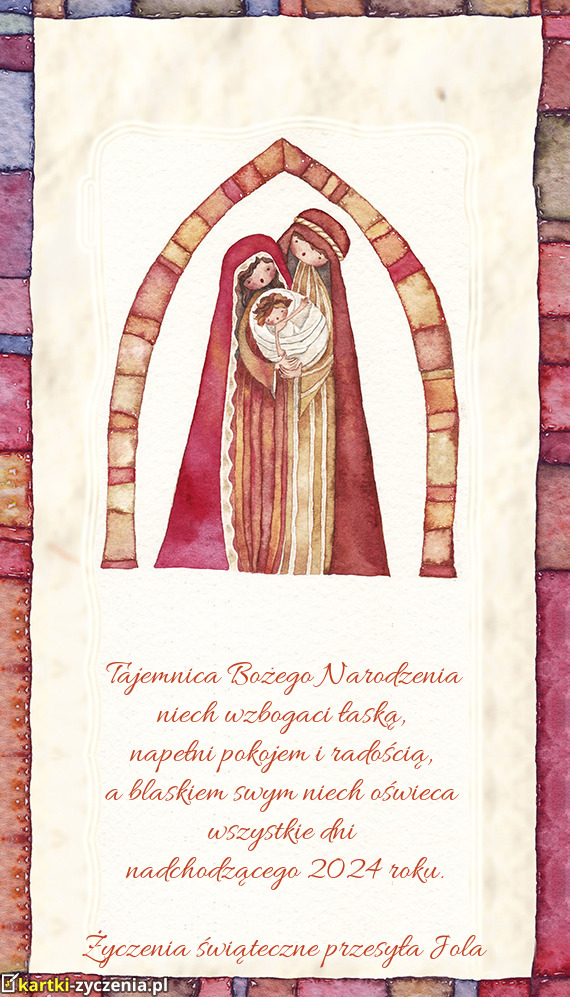 Tajemnica Bożego Narodzenia
niech wzbogaci łaską,
napełni pokojem i radością,
a blaskiem swym niech oświeca
wszystkie dni
nadchodzącego 2024 roku.
Życzenia świąteczne przesyła Jola
kartki-zyczenia.pl